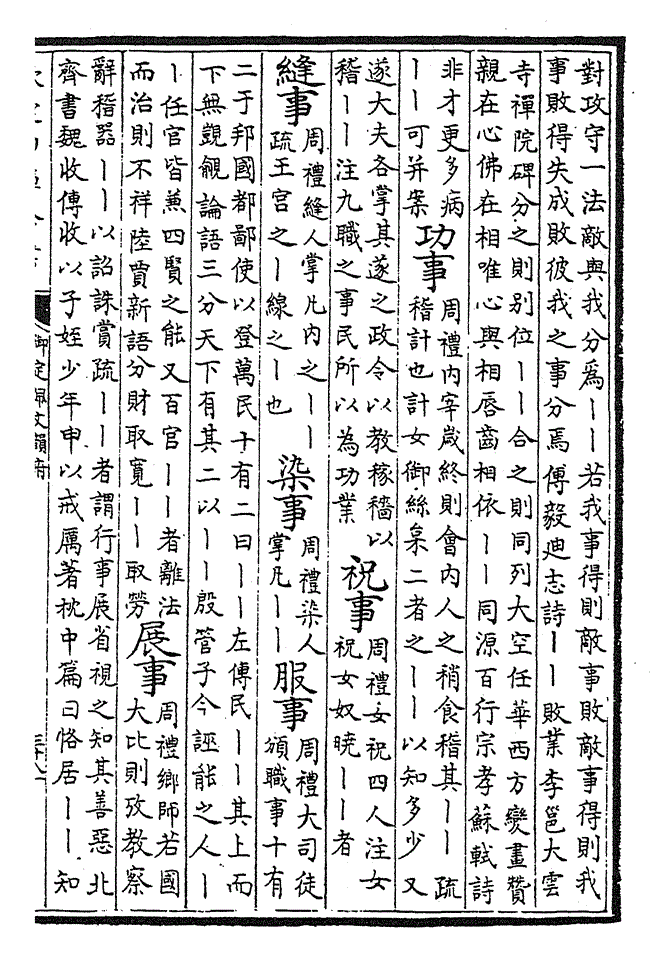 對攻守一法敵與我分爲丨丨若我事得則敵事敗敵事得則我
事敗得失成敗彼我之事分焉 傅毅廸志詩丨丨敗業李邕大雲
寺禪院碑分之則别位丨丨合之則同列大空任華西方變畫贊
親在心佛在相唯心與相唇齒相依丨丨同源百行宗孝蘇軾詩
非才更多病
丨丨可并案
功事
周禮內宰歲終則會內人之稍食稽其丨丨疏
稽計也計女御絲枲二者之丨丨以知多少又
遂大夫各掌其遂之政令以教稼穡以
稽丨丨注九職之事民所以為功業
祝事
周禮女祝四人注女
祝女奴曉丨丨者
縫事
周禮縫人掌凡內之丨丨
疏王宫之丨線之丨也
染事
周禮染人
掌凡丨丨
服事
周禮大司徒
頒職事十有
二于邦國都鄙使以登萬民十有二曰丨丨左傳民丨丨其上而
下無覬覦論語三分天下有其二以丨丨殷管子今誣能之人丨
丨任官皆兼四賢之能又百官丨丨者離法
而治則不祥陸賈新語分財取寛丨丨取勞
展事
周禮鄉師若國
大比則攷教察
辭稽器丨丨以詔誅賞疏丨丨者謂行事展省視之知其善惡北
齊書魏收傳收以子姪少年申以戒厲著枕中篇曰恪居丨丨知
御定佩文韻府